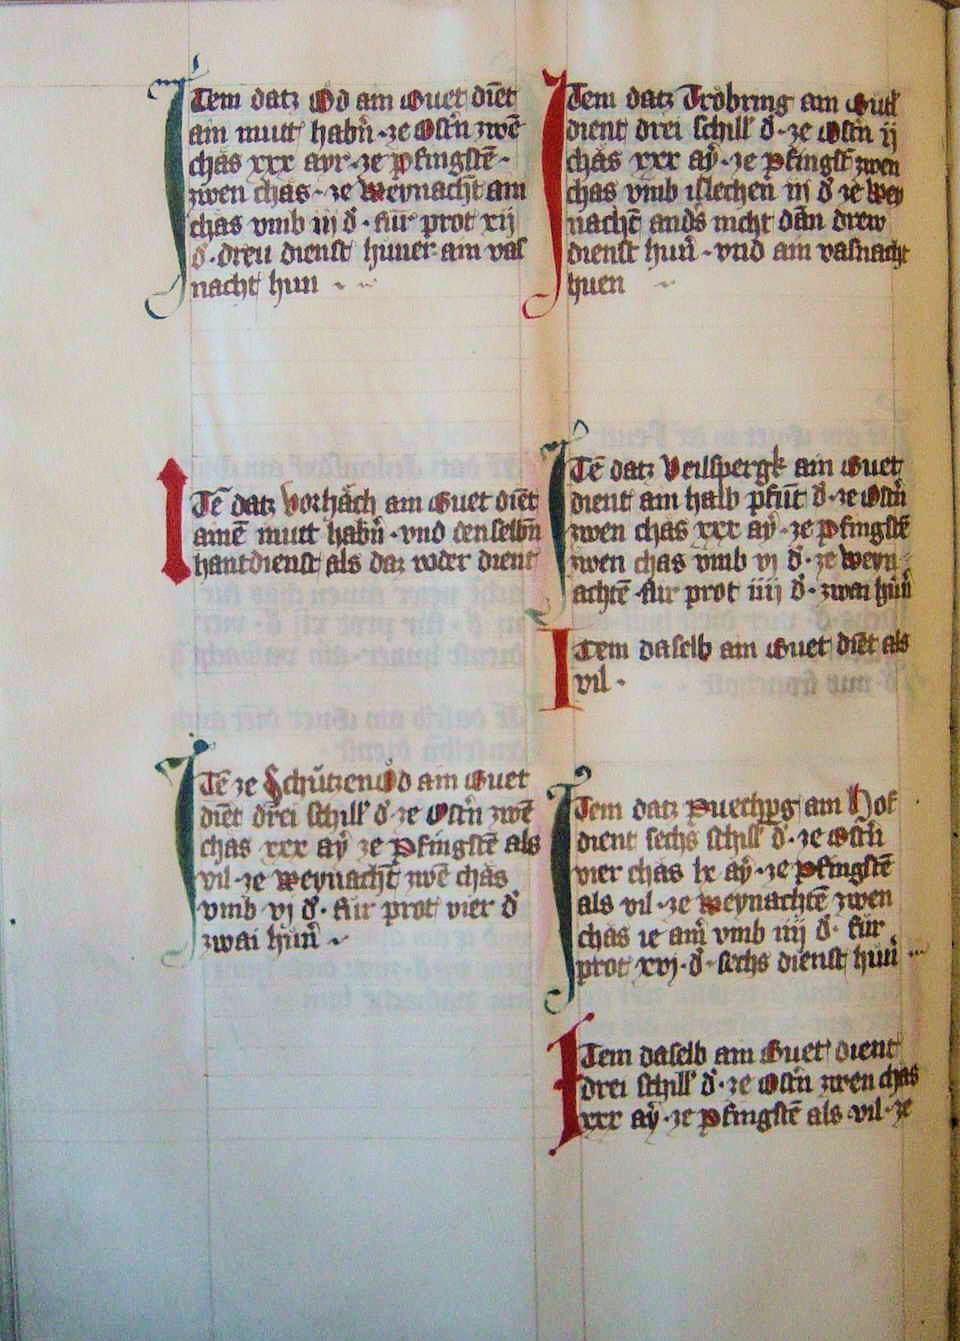 Jtem datz Öd am Guet diēt
am mutt habn̄ · ze Ostn̄ zwē
chas xxx ayr · ze pfingstē ·
zwen chas · ze Weynacht am
chas vmb iij d̄ · für prot xij
d̄ · dreu dienst huner · am vas
nacht hun
Jtē datz Vorhäch am Guet diēt
amē mutt habn̄ · vnd denselbn̄
hantdienst als daz voder dient
Jtē ze Schützenöd am Guet
diēt drei schill d̄ · ze Ostn̄ zwē
chas xxx aÿ ze Pfingstē als
vil · ze Weynacht zwē chas
vmb vj d̄ · für prot vier d̄
zwai hün̄
Jtem datz Trobring am Gut
dient drei schill d̄ · ze Ostn̄ ij
chas xxx aÿ · ze Pfingst zwen
chas vmb islechen̄ iij d̄ ze Wey
nachtē anders nicht dān drew
dienst hun̄ · vnd am vasnacht
huen
Jtē datz Veilspergk am Guet
dient am halb pfūt d̄ · ze Ostn̄
zwen chas xxx aÿ · ze Pfingstē
zwen chas vmb vj d̄ · ze Weyn
achtē · für prot iiij d̄ · zwai hün̄
Jtem daselb am Guet diēt als
vil ·
Jtem datz Puechpg am Hof
dient sechs schill d̄ · ze Ostn̄
vier chas lx aÿ · ze Pfingstē
als vil · ze Weynachtē zwen
chas ie am̄ vmb iiij d̄ · für
prot xvj · d̄ · sechs dienst hun̄
Jtem daselb am Guet dient
drei schill d̄ · ze Ostn̄ zwen chas
xxx aÿ · ze Pfingstē als · vil · ze